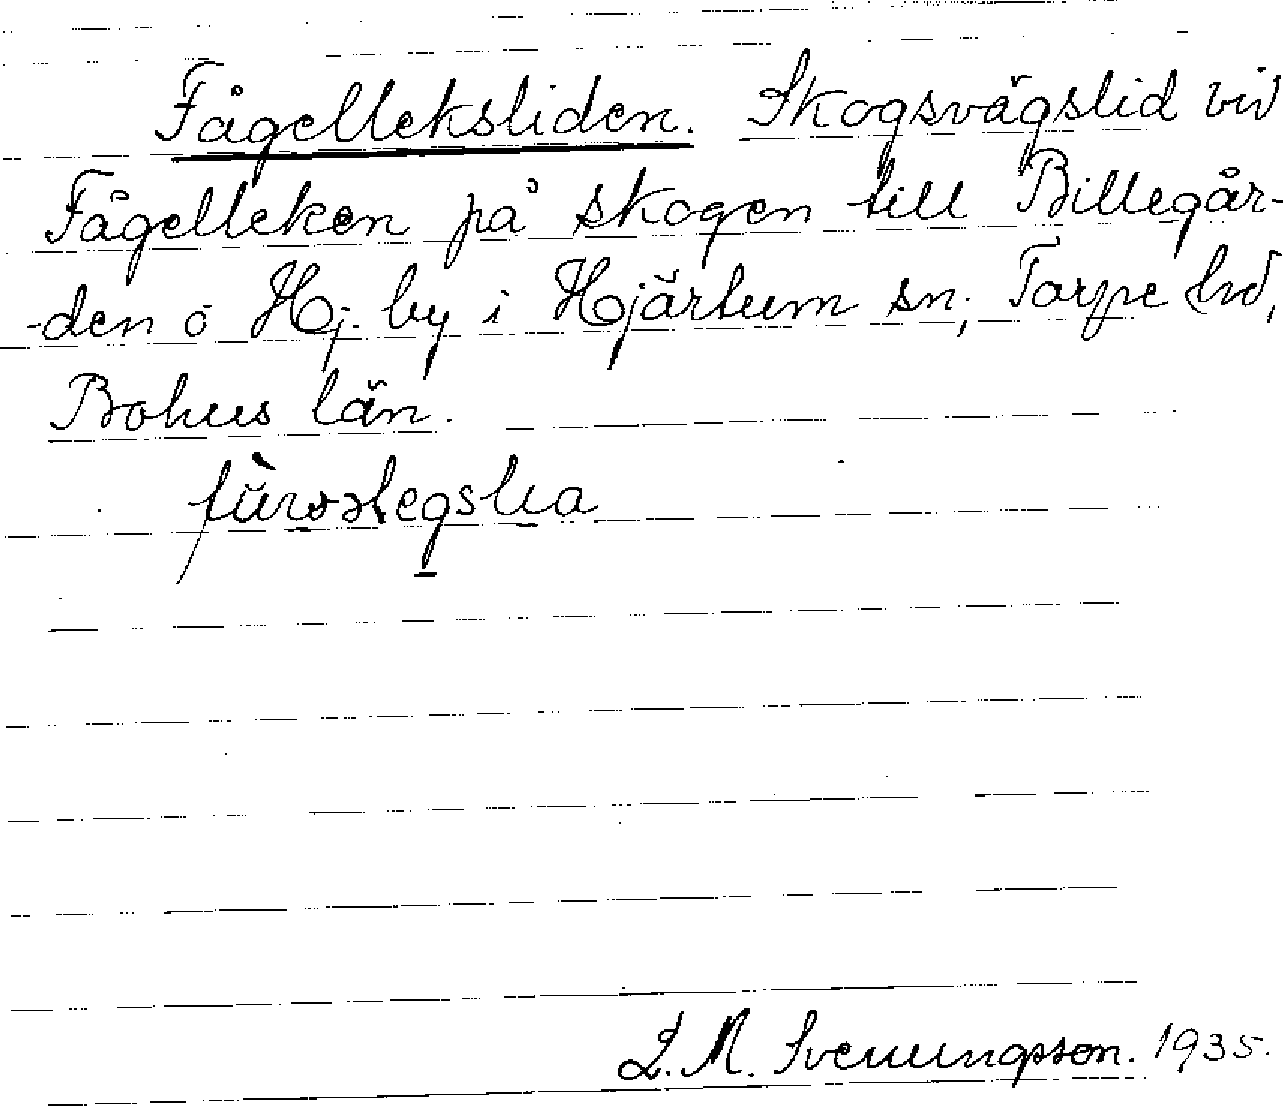 Fågelleksliden. Skogsvägslid vid
Fågelleken på skogen till Billegår-
-den ö Hj. by i Hjärtum sn, Torpe hd,
Bohus län.
L. M. Svenungsson. 1935.